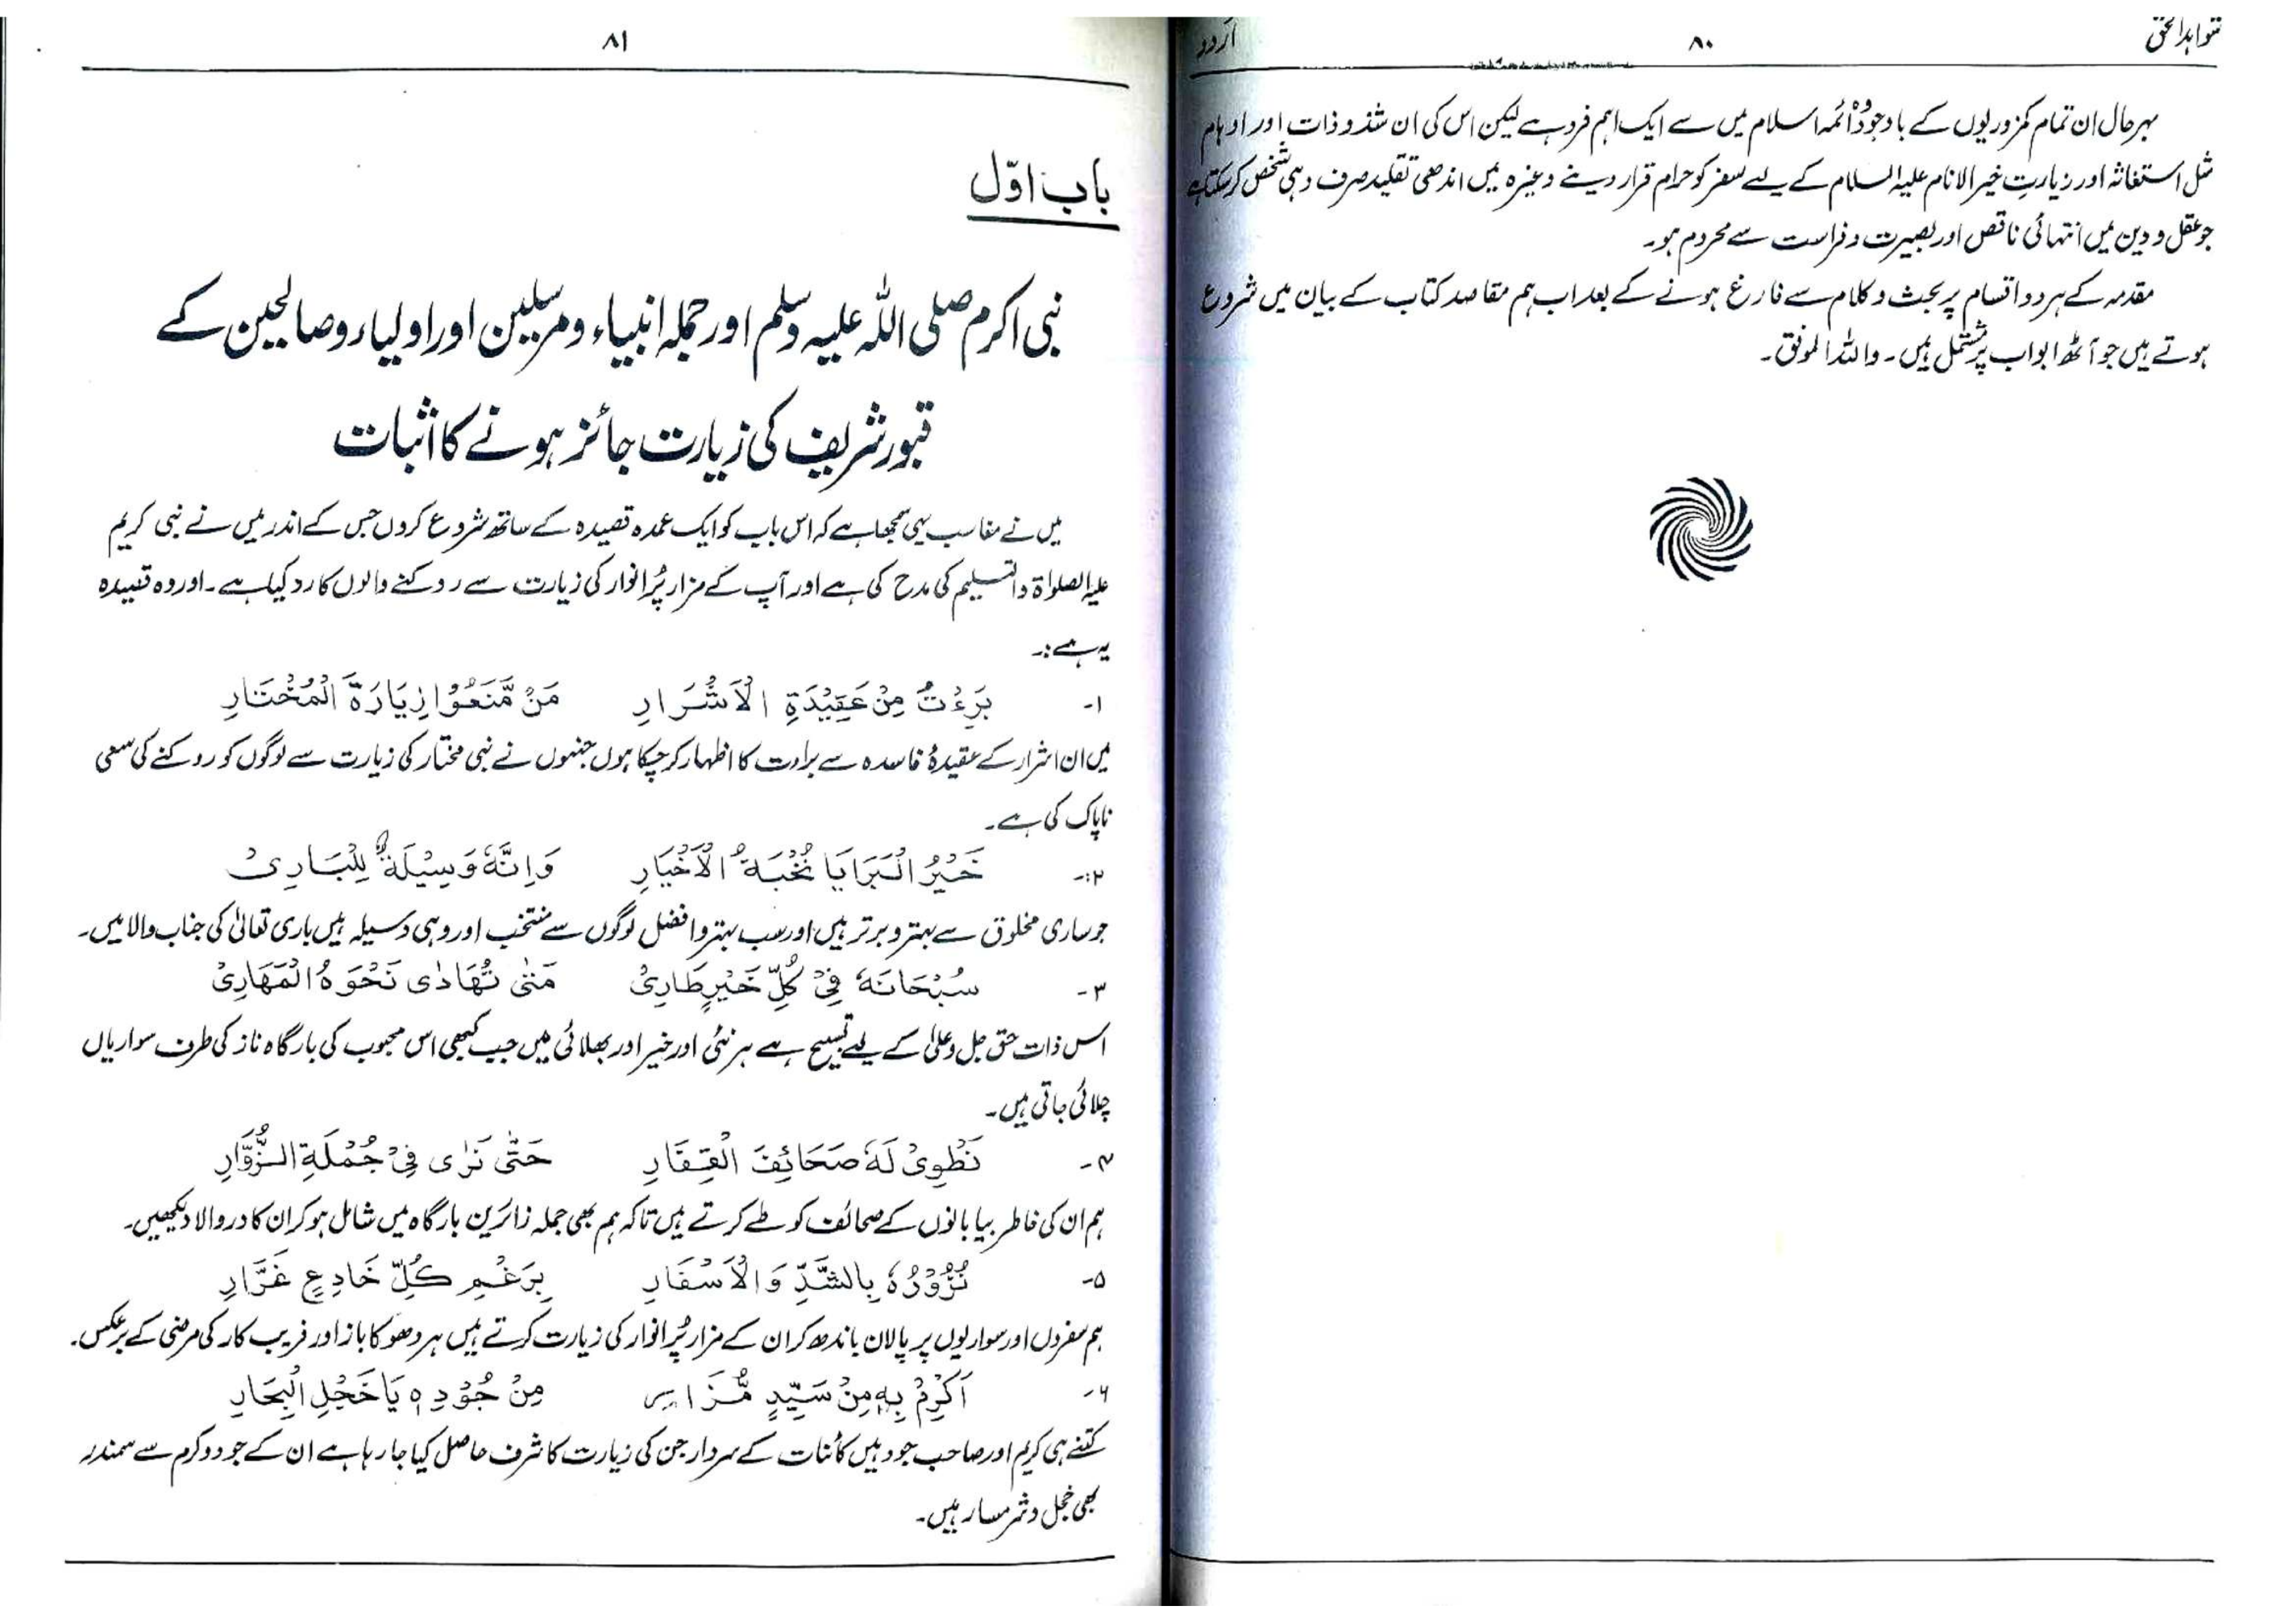 شواہد الحق ۸۰ اُردو
بہرحال ان تمام کمزوریوں کے باوجود وُہ ائمہ اسلام میں سے ایک اہم فرد ہے لیکن اس کی ان شذوذات اور اوہام
مثل استغاثہ اور زیارتِ خیر الانام علیہ السلام کے لیے سفر کو حرام قرار دینے وغیرہ میں اندھی تقلید صرف وہی شخص کر سکتا ہے
جو عقل و دین میں انتہائی ناقص اور بصیرت و فراست سے محروم ہو۔
مقدمہ کے ہر دو اقسام پر بحث و کلام سے فارغ ہونے کے بعد اب ہم مقاصد کتاب کے بیان میں شروع
ہوتے ہیں جو آٹھ ابواب پر مشتمل ہیں۔ واللہ الموفق۔
۸۱
باب اوّل
نبی اکرم صلی اللہ علیہ وسلم اور جملہ انبیاء و مرسلین اور اولیاء و صالحین کے
قبور شریف کی زیارت جائز ہونے کا اثبات
میں نے مناسب یہی سمجھا ہے کہ اس باب کو ایک عمدہ قصیدہ کے ساتھ شروع کروں جس کے اندر میں نے نبی کریم
علیہ الصلواۃ والتسلیم کی مدح کی ہے اور آپ کے مزار پُر انوار کی زیارت سے روکنے والوں کا رد کیا ہے۔ اور وہ قصیدہ
یہ ہے:۔
۱۔ بَرِءْتُ مِنْ عَقِيْدَةِ الْاَشْرَارِ مَنْ مَّنَعُوْا زِيَارَةَ الْمُخْتَارِ
میں ان اشرار کے عقیدۂ فاسدہ سے براءت کا اظہار کر چکا ہوں جنہوں نے نبی مختار کی زیارت سے لوگوں کو روکنے کی سعی
ناپاک کی ہے۔
۲:۔ خَيْرُ الْبَرَايَا نُخْبَةُ الْاَخْيَارِ وَاِنَّهٗ وَسِيْلَةٌ لِلْبَارِیْ
جو ساری مخلوق سے بہتر و برتر ہیں اور سب بہتر و افضل لوگوں سے منتخب اور وہی وسیلہ ہیں باری تعالیٰ کی جناب والا میں۔
۳۔ سُبْحَانَهٗ فِیْ كُلِّ خَيْرٍ طَارِیْ مَتٰى تُهَادٰى نَحْوَهُ الْمَهَارِیْ
اس ذات حق جل وعلیٰ کے لیے تسبیح ہے ہر نئی اور خیر اور بھلائی میں جب کبھی اس محبوب کی بارگاہ ناز کی طرف سواریاں
چلائی جاتی ہیں۔
۴۔ نَطْوِیْ لَهٗ صَحَائِفَ الْقِفَارِ حَتّٰى نَرٰى فِیْ جُمْلَةِ الزُّوَّارِ
ہم ان کی خاطر بیابانوں کے صحائف کو طے کرتے ہیں تاکہ ہم بھی جملہ زائرین بارگاہ میں شامل ہو کر ان کا در والا دیکھیں۔
۵۔ نُزُوْرُهٗ بِالشَّدِّ وَالْاَسْفَارِ بِرَغْمِ كُلِّ خَادِعٍ غَرَّارِ
ہم سفروں اور سواریوں پر پالان باندھ کر ان کے مزار پُر انوار کی زیارت کرتے ہیں ہر دھوکا باز اور فریب کار کی مرضی کے برعکس۔
۶۔ اَكْرِمْ بِهٖ مِنْ سَيِّدٍ مُّزَارِ مِنْ جُوْدِهٖ يَا خَجْلِ الْبِحَارِ
کتنے ہی کریم اور صاحب جود ہیں کائنات کے سردار جن کی زیارت کا شرف حاصل کیا جا رہا ہے ان کے جود و کرم سے سمندر
بھی خجل و شرمسار ہیں۔